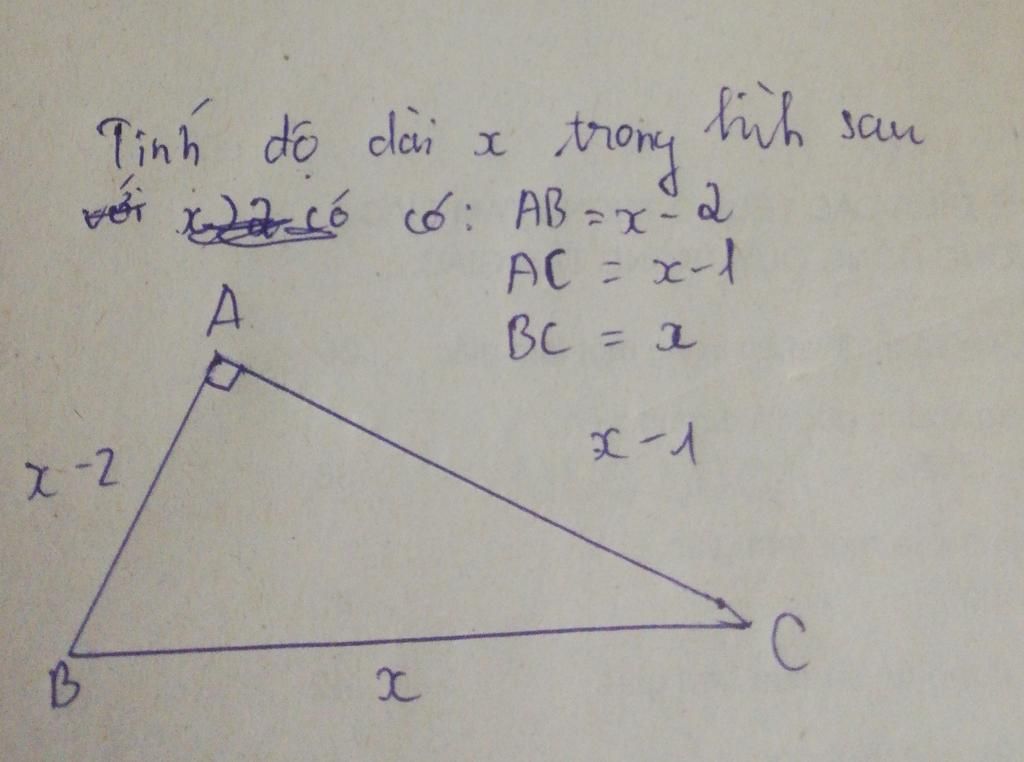 Tính độ dài x trong hình sau
với x>2 có có: AB = x - 2
AC = x - 1
BC = x
A
x - 2
x - 1
B
x
C